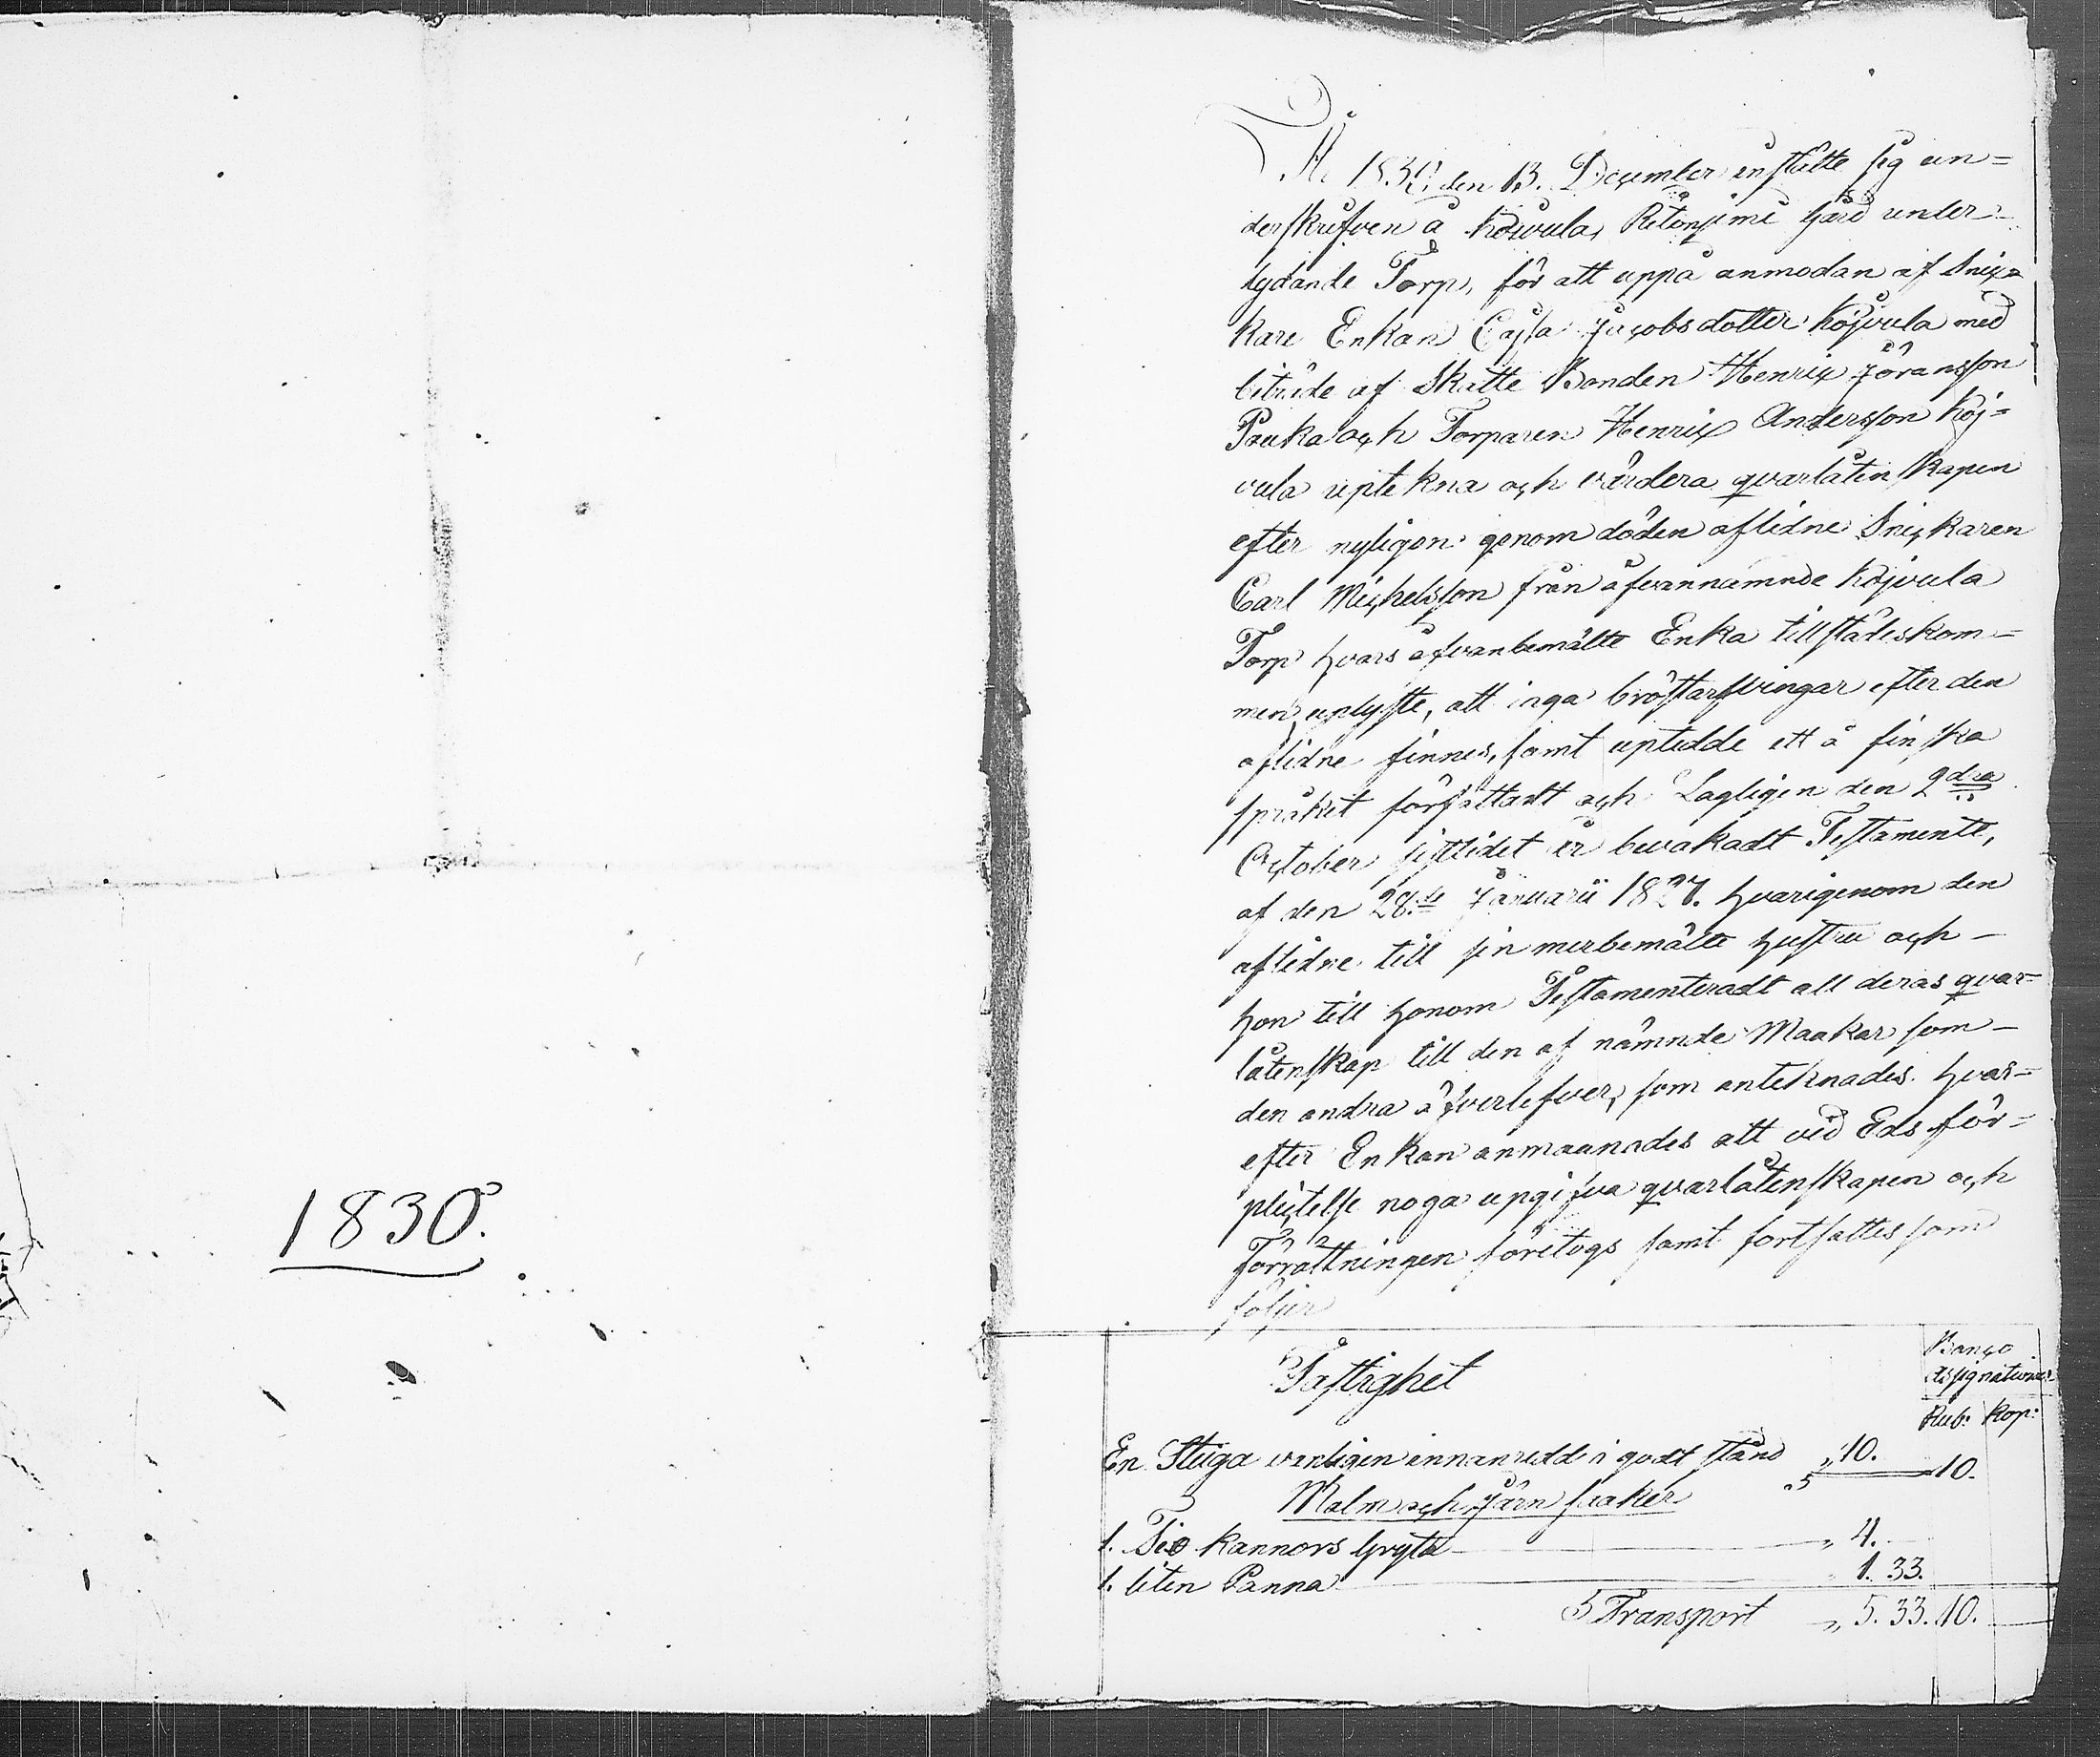 1830.
År 1830, den 13. December instälte sig un=
derskrifven å Köjvula, Ritoniemi gård under=
lydande Torp, för att uppå anmodan af Snic=
kare Enkan Cajsa Jacobsdotter Köjvula med
biträde af Skatte Bonden Henric Jöransson
Pauka och Torparen Henric Andersson Köj=
vula uptekna och värdera qvarlåtenskapen
efter nyligen genom döden aflidne Snickaren
Carl Michelsson från åfvannämnde Köjvula
Torp hvars åfvanbemälte Enka tillstädeskom=
men uplyste, att inga bröstarfvingar efter den
aflidne finnes, samt uptedde ett å finska
språket författadt och Lagligen den 2dra
October sistlidet år bevakadt Testamente,
af den 28de Januarii 1827. hvarigenom den
aflidne till sin merbemälte hustru och
hon till honom Testamenteradt all deras qvar=
låtenskap till den af nämnde Maakar som
den andra öfverlefver, som anteknades. hvar=
efter Enkan anmaanades att vid Eds för=
plictelse noga upgifva qvarlåtenskapen och
Förrättningen företogs samt fortsattes som
följer
Banco
Assignationer
Fastighet
Rub: Kop:
En Stuga vanligen innanredd i godt stånd „ 10. 10.
Malm och Järn saker
1. Tio kannors gryta „ 4.
1. liten Panna 1. 33.
Transport „ 5. 33. 10.